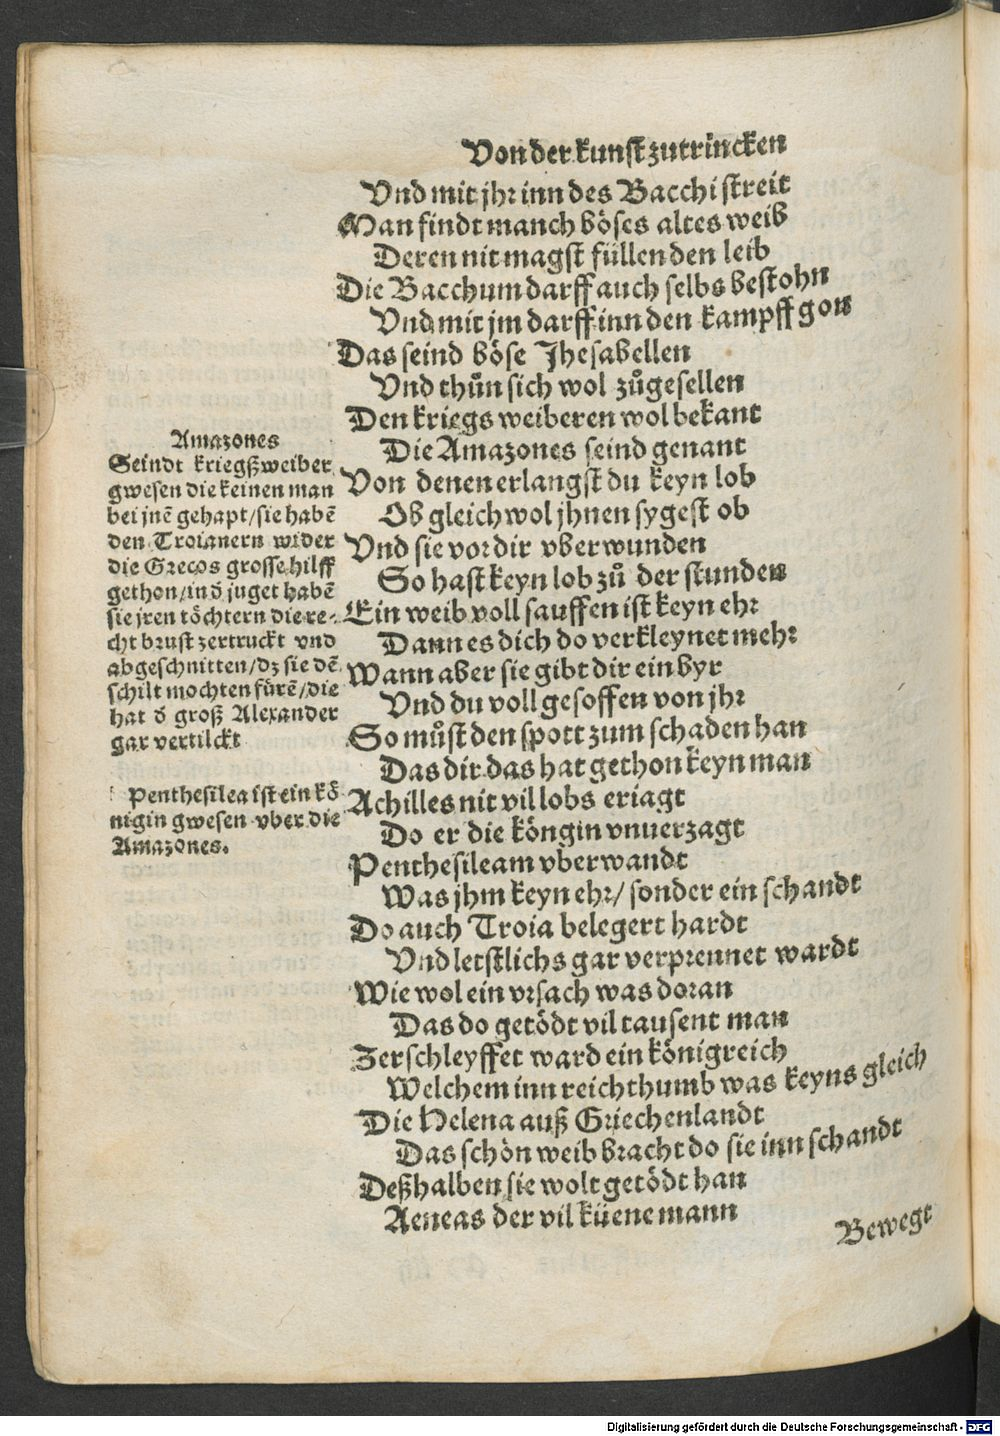 Von der kunst zutrincken
Vnd mit jhr inn des Bacchi streit
Man findt manch böses altes weib
Deren nit magst füllen den leib
Die Bacchum darff auch selbs bestohn
Vnd mit jm darff inn den kampff gon
Das seind böse Jhesabellen
Vnd thůn sich wol zůgesellen
Den kriegs weiberen wol bekant
Die Amazones seind genant
Von denen erlangst du keyn lob
Ob gleichwol jhnen sygest ob
Vnd sie vor dir vberwunden
So hast keyn lob zů der stunden
Ein weib voll sauffen ist keyn ehr
Dann es dich do verkleynet mehr
Wann aber sie gibt dir ein byr
Vnd du voll gesoffen von jhr
So můst den spott zum schaden han
Das dir das hat gethon keyn man
Achilles nit vil lobs eriagt
Do er die köngin vnuerzagt
Penthesileam vberwandt
Was jhm keyn ehr/ sonder ein schandt
Do auch Troia belegert hardt
Vnd letstlichs gar verprennet wardt
Wie wol ein vrsach was doran
Das do getödt vil tausent man
Zerschleyffet ward ein königreich
Welchem inn reichthumb was keyns gleich
Die Helena auß Griechenlandt
Das schön weib bracht do sie inn schandt
Deßhalben sie wolt getödt han
Aeneas der vil küene mann
Bewegt
Amazones
Seindt kriegßweiber
gwesen die keinen man
bei jnē gehapt/sie habē
den Troianern wider
die Grecos grosse hilff
gethon/in d̄ juget habē
sie jren töchtern die re-
cht brust zertruckt vnd
abgeschnitten/dz sie dē
schilt mochten fürē/die
hat d̄ groß Alexander
gar vertilckt
Penthesilea ist ein kö
nigin gwesen vber die
Amazones.
Digitalisierung gefördert durch die Deutsche Forschungsgemeinschaft - DFG